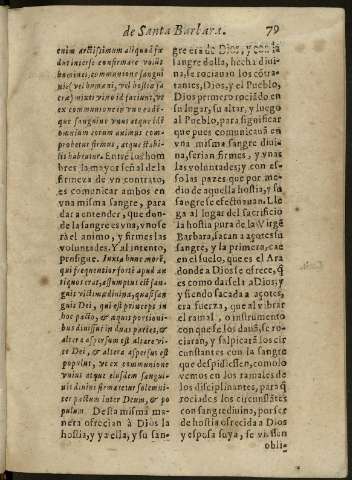 de Santa Barbara. 79
enim arctissimum aliquod fœ
dus inter se confirmare volūt
homines, communione sangui
nis (vel humani, vel hostia sa
cra) mixti vino id faciunt, ve
ex communione in vno eodē-
que sanguine vnus atque idē
omnium eorum animus com-
probetur firmus, atque stabi-
lis habeatur. Entre los hom
bres la mayor señal de la
firmeza de vn contrato,
es comunicar ambos en
vna misma sangre, para
dar a entender, que don-
de la sangre es vna, y no se
rà el animo, y firmes las
voluntades. Y al intento,
prosigue. Iuxta hunc morē,
qui frequentior fortè apud an
tiquos erat, assumptus est san-
guis victimæ diuinæ, quasi san
guis Dei, qui est princeps in
hoc pacto, & æquis portioni-
bus diuissus in duas partes, &
altera aspersum est altare vi-
ce Dei, & altera aspersus est
populus, ve ex communione
vnius atque eiusdem sangui-
nis diuini firmaretur solemni-
ter pactum inter Deum, & po
pulum. Desta misma ma
nera ofrecian à Dios la
hostia, y ya ella, y su san-
gre era de Dios, y con la
sangre della, hecha diui-
na, se rociauan los cōtra-
tantes, Dios, y el Pueblo,
Dios primero rociado en
su lugar, su altar, y luego
al Pueblo, para significar
que pues comunicauā en
vna misma sangre diui-
na, serian firmes, y vnas
las voluntades; y con es-
so las pazes que por me-
dio de aquella hostia, y sā
sangre se efectuauan. Lle
ga al lugar del sacrificio
la hostia pura de la Virgē
Barbara, sacan a açotes su
sangre, y la primera, cae
en el suelo, que es el Ara
donde a Dios se ofrece, q̃
es como darsela a Dios; y
siendo sacada a açotes,
era fuerça, que al vibrar
el ramal, o instrumento
con que se los dauā, se ro-
ciaran, y salpicarà los cir
cunstantes con la sangre
que despidiessen, como lo
vemos en los ramales de
los disciplinantes, para q̃
rociades los circunstātes
con sangre diuina, por ser
de hostia ofrecida a Dios
y esposa suya, se viessen
obli-